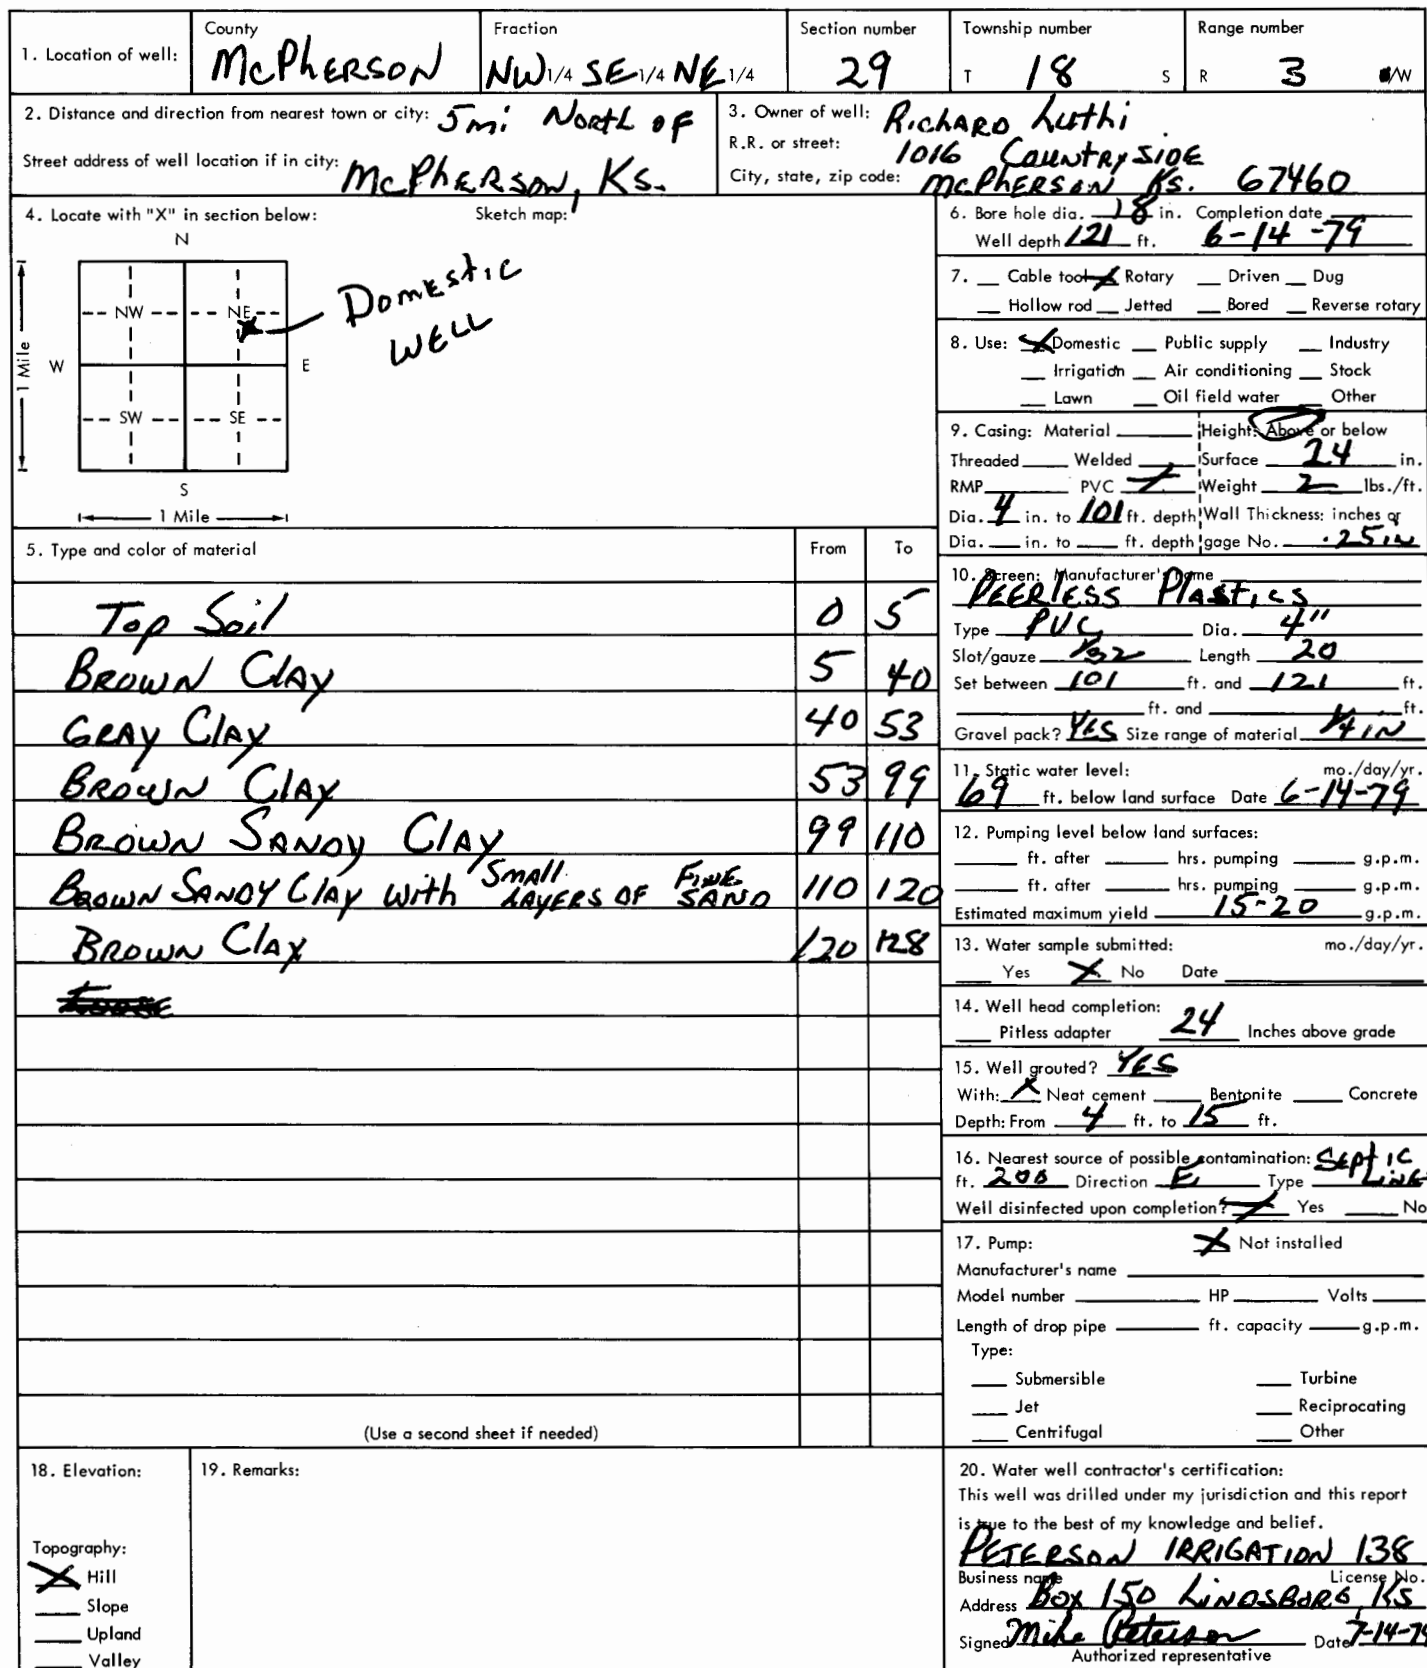 County Fraction Section number Township number Range number
1. Location of well: McPherson NW 1/4 SE 1/4 NE 1/4 29 T 18 S R 3 /W
2. Distance and direction from nearest town or city: 5 mi North of
Street address of well location if in city: McPherson, Ks.
3. Owner of well: Richard Luthi
R.R. or street: 1016 Countryside
City, state, zip code: McPherson Ks. 67460
4. Locate with "X" in section below: Sketch map:
N
NW NE
W E
SW SE
S
1 Mile
1 Mile
Domestic
Well
5. Type and color of material From To
Top Soil 0 5
Brown Clay 5 40
Gray Clay 40 53
Brown Clay 53 99
Brown Sandy Clay 99 110
Brown Sandy Clay with small layers of fine sand 110 120
Brown Clay 120 128
(Use a second sheet if needed)
6. Bore hole dia. 18 in. Completion date
Well depth 121 ft. 6-14-79
7. __ Cable tool X Rotary __ Driven __ Dug
__ Hollow rod __ Jetted __ Bored __ Reverse rotary
8. Use: X Domestic __ Public supply __ Industry
__ Irrigation __ Air conditioning __ Stock
__ Lawn __ Oil field water __ Other
9. Casing: Material ____ Height: Above or below
Threaded ____ Welded ____ Surface 24 in.
RMP ____ PVC X Weight 2 lbs./ft.
Dia. 4 in. to 101 ft. depth Wall Thickness: inches or
Dia. ___ in. to ___ ft. depth gage No. .25 in
10. Screen: Manufacturer's name
Peerless Plastics
Type PVC Dia. 4"
Slot/gauze 1/32 Length 20
Set between 101 ft. and 121 ft.
____ ft. and ____ ft.
Gravel pack? Yes Size range of material 1/4 in
11. Static water level: mo./day/yr.
69 ft. below land surface Date 6-14-79
12. Pumping level below land surfaces:
____ ft. after ____ hrs. pumping ____ g.p.m.
____ ft. after ____ hrs. pumping ____ g.p.m.
Estimated maximum yield 15-20 g.p.m.
13. Water sample submitted: mo./day/yr.
__ Yes X No Date
14. Well head completion:
__ Pitless adapter 24 Inches above grade
15. Well grouted? Yes
With: X Neat cement ____ Bentonite ____ Concrete
Depth: From 4 ft. to 15 ft.
16. Nearest source of possible contamination: Septic
ft. 200 Direction E Type Line
Well disinfected upon completion? X Yes ____ No
17. Pump: X Not installed
Manufacturer's name
Model number ____ HP ____ Volts ____
Length of drop pipe ____ ft. capacity ____ g.p.m.
Type:
__ Submersible __ Turbine
__ Jet __ Reciprocating
__ Centrifugal __ Other
18. Elevation:
Topography:
X Hill
__ Slope
__ Upland
__ Valley
19. Remarks:
20. Water well contractor's certification:
This well was drilled under my jurisdiction and this report
is true to the best of my knowledge and belief.
Peterson Irrigation 138
Business name License No.
Address Box 150 Lindsborg, Ks
Signed Mike Peterson Date 7-14-79
Authorized representative